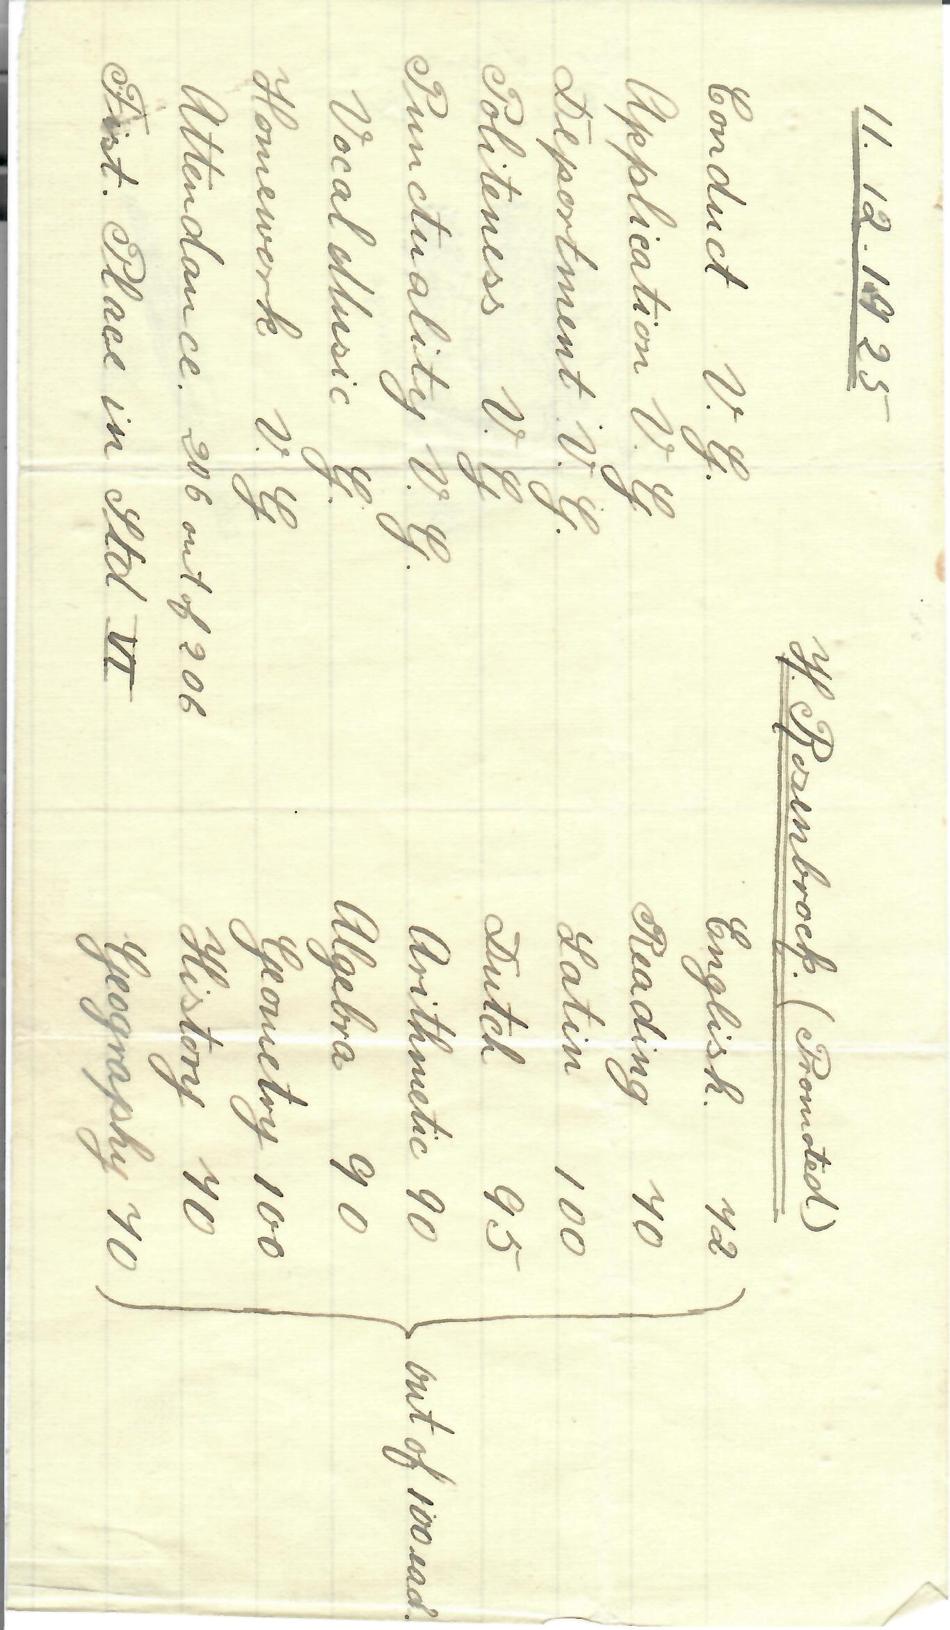 11.12.1925
H. Rosenbrock. (Promoted)
Conduct V. G.
Application V. G
Deportment. V. G.
Politeness V. G
Punctuality V. G.
Vocal Music G.
Homework V. G
Attendance. 206 out of 206
First. Place in Std VI
English. 72
Reading 70
Latin 100
Dutch 95
Arithmetic 90
Algebra 90
Geometry 100
History 70
Geography 70
out of 100 ead.